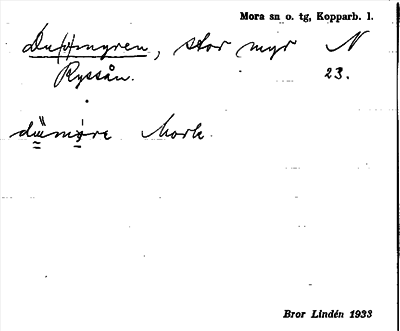 Mora sn o. tg, Kopparb. l.
Du(s)myren, stor myr N
Ryssån. 23.
dümøre Mork.
Bror Lindén 1933